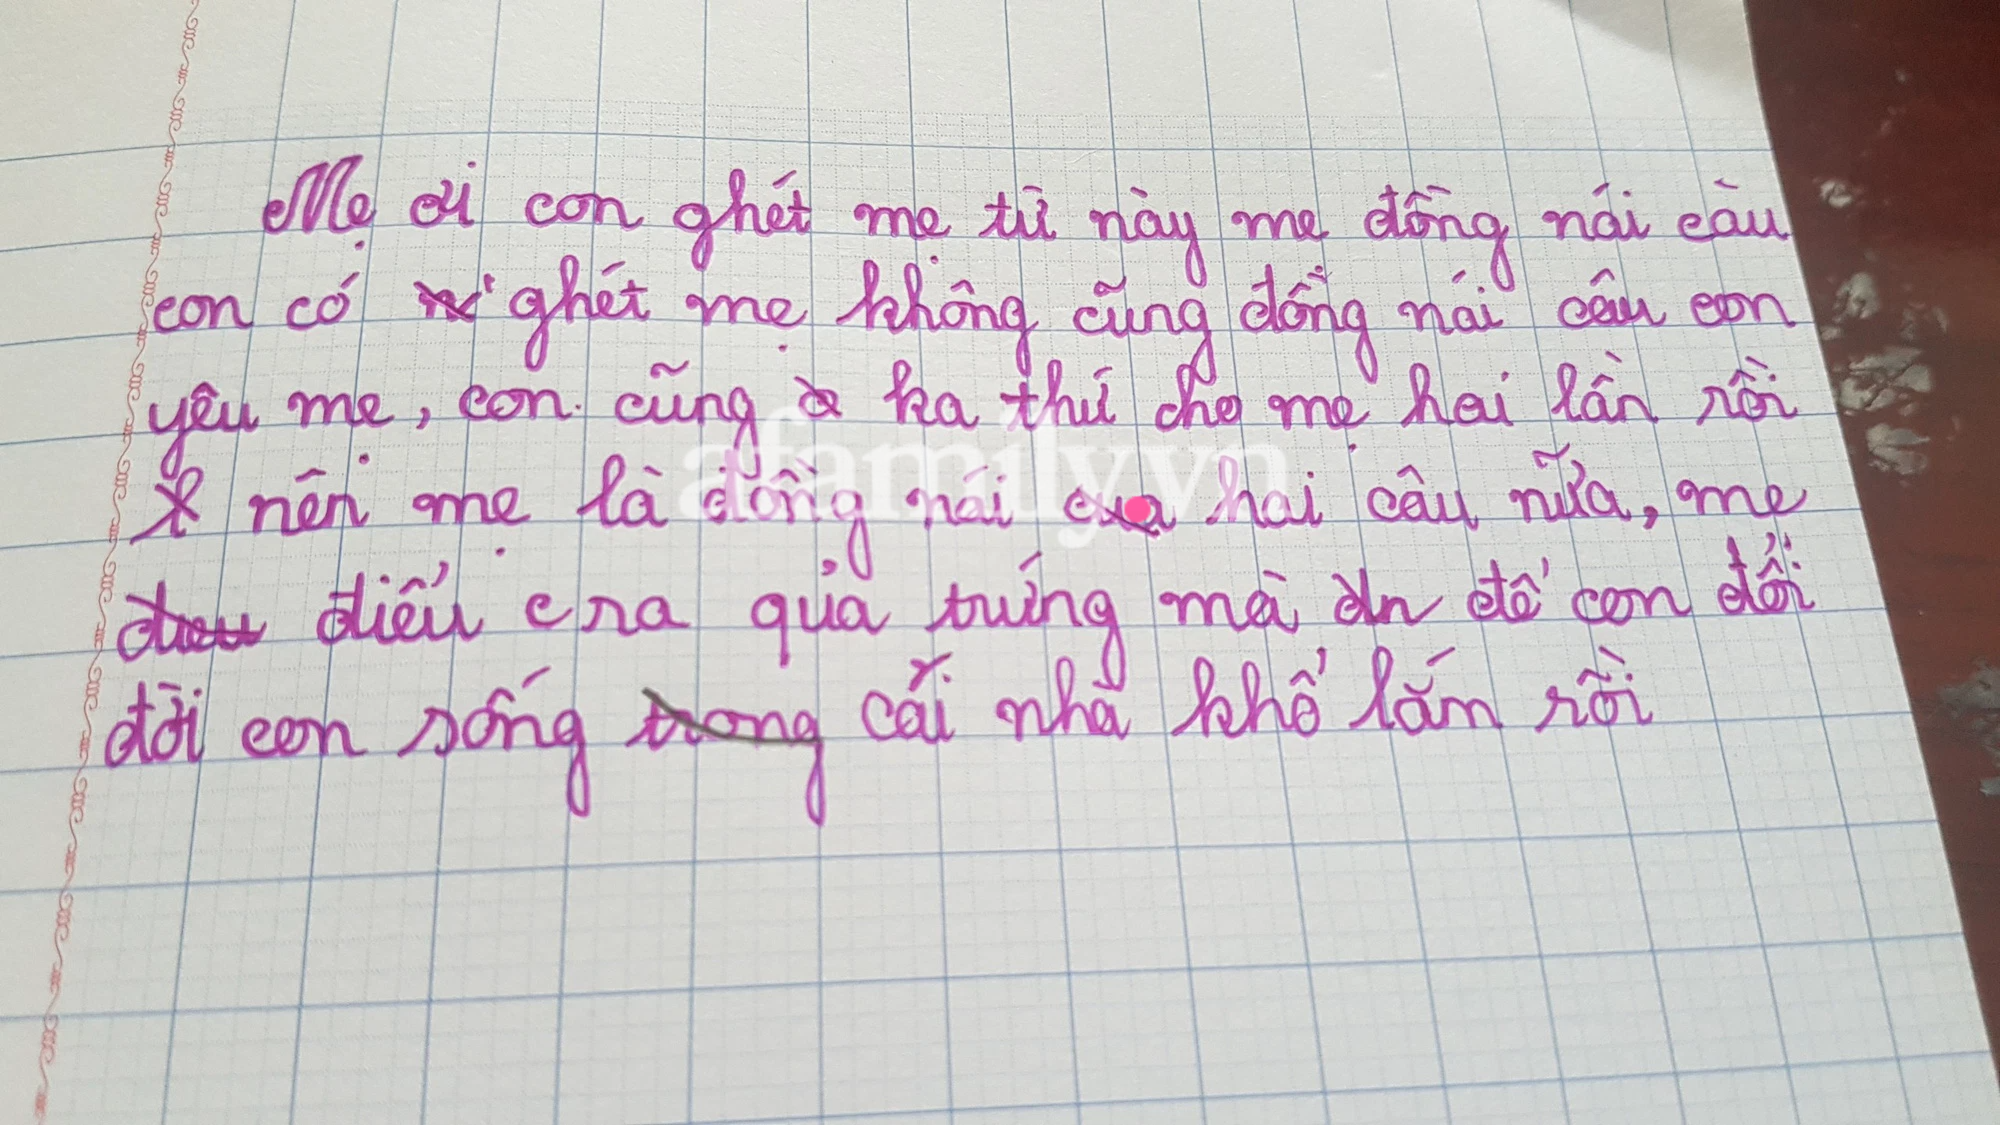 Mẹ ơi con ghét mẹ từ này mẹ đồng nói câu
con có ghét mẹ không cũng đồng nói câu con
yêu mẹ, con cũng ka thứ cho mẹ hai lần rồi
nên mẹ là đồng nói hai câu nữa, mẹ
điểu era quả trứng mà ăn để con đổi
đời con sống trong cái nhà khổ lắm rồi
afamily.vn